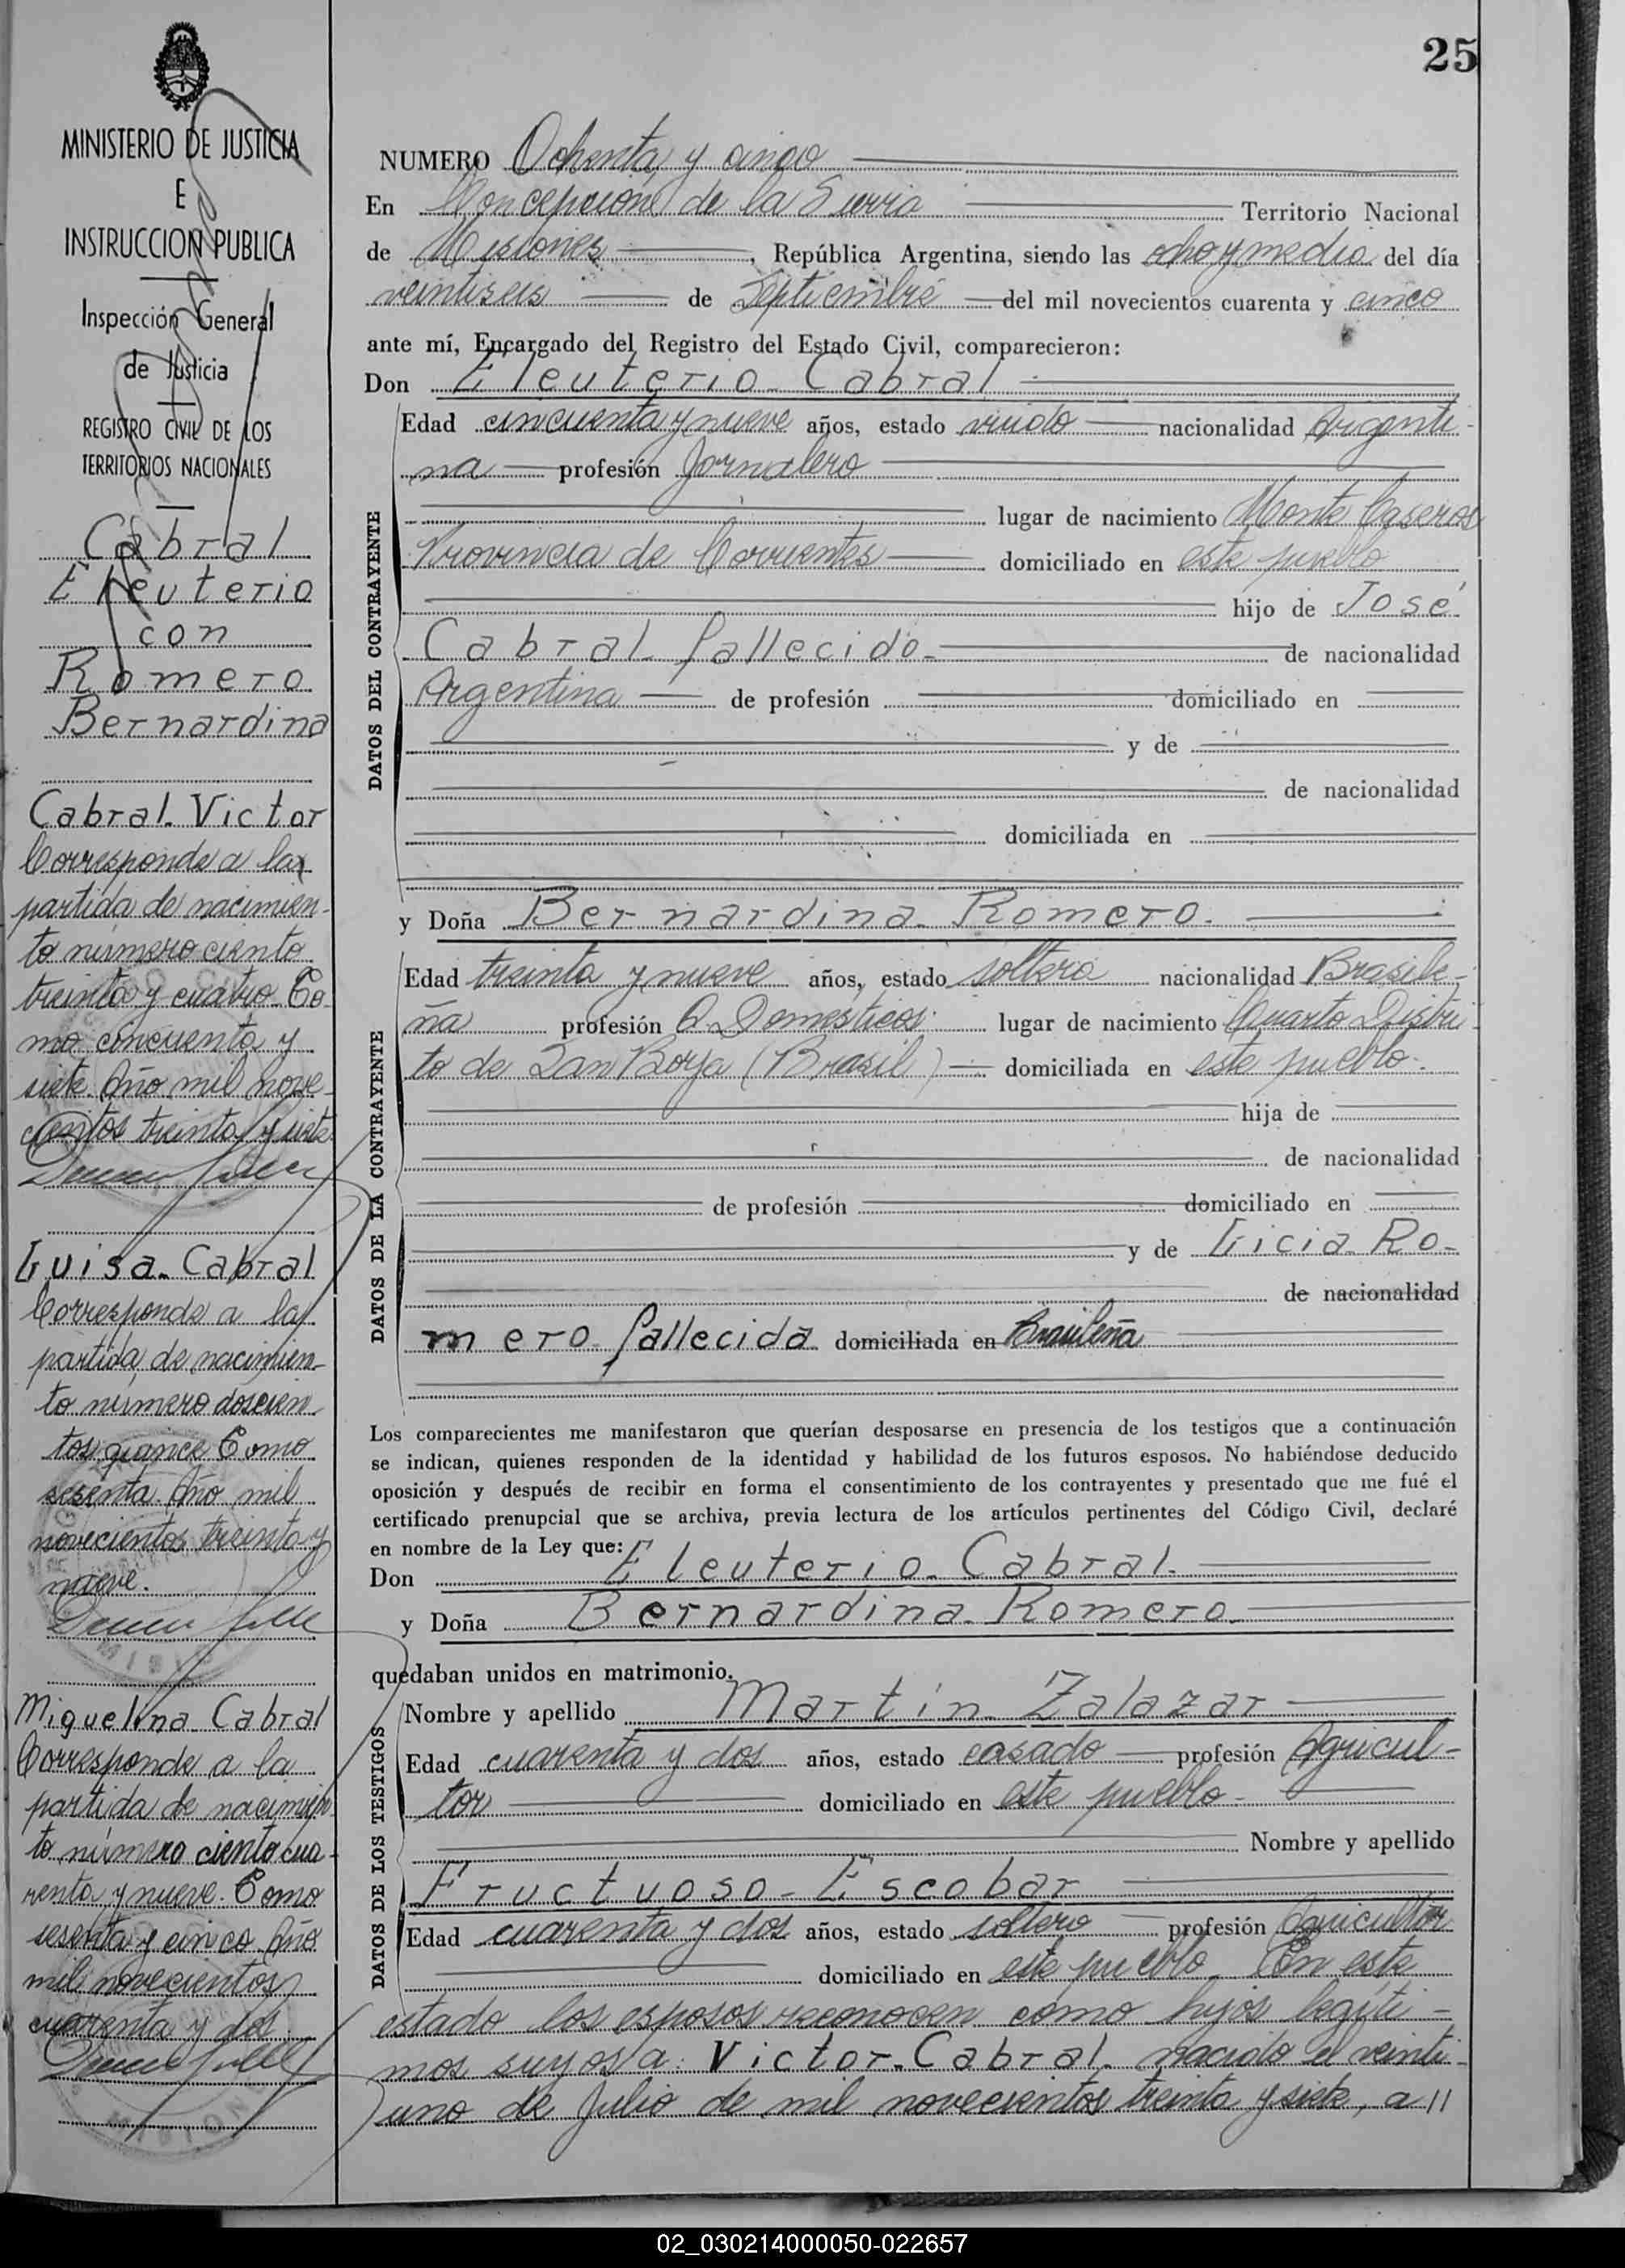 25
MINISTERIO DE JUSTICIA
E
INSTRUCCION PUBLICA
Inspección General
de Justicia
REGISTRO CIVIL DE LOS
TERRITORIOS NACIONALES
Cabral
Eleuterio
con
Romero
Bernardina
Cabral Victor
Corresponde a la
partida de nacimien-
to número ciento
treinta y cuatro. To-
mo cincuenta y
siete. Año mil nove-
cientos treinta y siete
Luisa Cabral
Corresponde a la
partida de nacimien-
to número doscien
tos quince Tomo
sesenta. Año mil
novecientos treinta y
nueve.
Miguelina Cabral
Corresponde a la
partida de nacimien
to número ciento cua-
renta y nueve. Tomo
sesenta y cinco. Año
mil novecientos
cuarenta y dos
NUMERO Ochenta y cinco
En Concepción de la Sierra Territorio Nacional
de Misiones, República Argentina, siendo las ocho y media del día
veintiseis de Septiembre del mil novecientos cuarenta y cinco
ante mí, Encargado del Registro del Estado Civil, comparecieron:
Don Eleuterio Cabral
DATOS DEL CONTRAYENTE
Edad cincuenta y nueve años, estado viudo nacionalidad Argenti-
na profesión Jornalero
lugar de nacimiento Monte Caseros
Provincia de Corrientes domiciliado en este pueblo
hijo de José
Cabral fallecido de nacionalidad
Argentina de profesión domiciliado en
y de
de nacionalidad
domiciliada en
y Doña Bernardina Romero.
DATOS DE LA CONTRAYENTE
Edad treinta y nueve años, estado soltera nacionalidad Brasile-
ña profesión Q. Domésticos lugar de nacimiento Cuarto Distri-
to de San Borja (Brasil) domiciliada en este pueblo.
hija de
de nacionalidad
de profesión domiciliado en
y de Licia Ro-
de nacionalidad
mero fallecida domiciliada en Brasileña
Los comparecientes me manifestaron que querían desposarse en presencia de los testigos que a continuación
se indican, quienes responden de la identidad y habilidad de los futuros esposos. No habiéndose deducido
oposición y después de recibir en forma el consentimiento de los contrayentes y presentado que me fué el
certificado prenupcial que se archiva, previa lectura de los artículos pertinentes del Código Civil, declaré
en nombre de la Ley que:
Don Eleuterio Cabral
y Doña Bernardina Romero
quedaban unidos en matrimonio.
DATOS DE LOS TESTIGOS
Nombre y apellido Martin Zalazar
Edad cuarenta y dos años, estado casado profesión Agricul-
tor domiciliado en este pueblo
Nombre y apellido
Fructuoso Escobar
Edad cuarenta y dos años, estado soltero profesión Agricultor
domiciliado en este pueblo. En este
estado los esposos reconocen como hijos legíti-
mos suyos a: Victor Cabral nacido el veinti-
uno de Julio de mil novecientos treinta y siete, a //
02_030214000050-022657